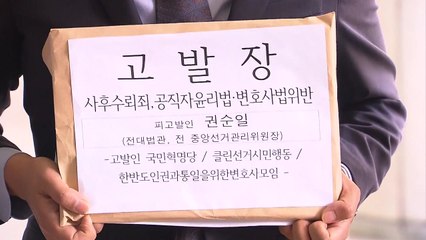 고 발 장
사후수뢰죄, 공직자윤리법·변호사법위반
피고발인 권순일
(전대법관, 전 중앙선거관리위원장)
-고발인 국민혁명당 / 클린선거시민행동 /
한반도인권과통일을위한변호사모임 -